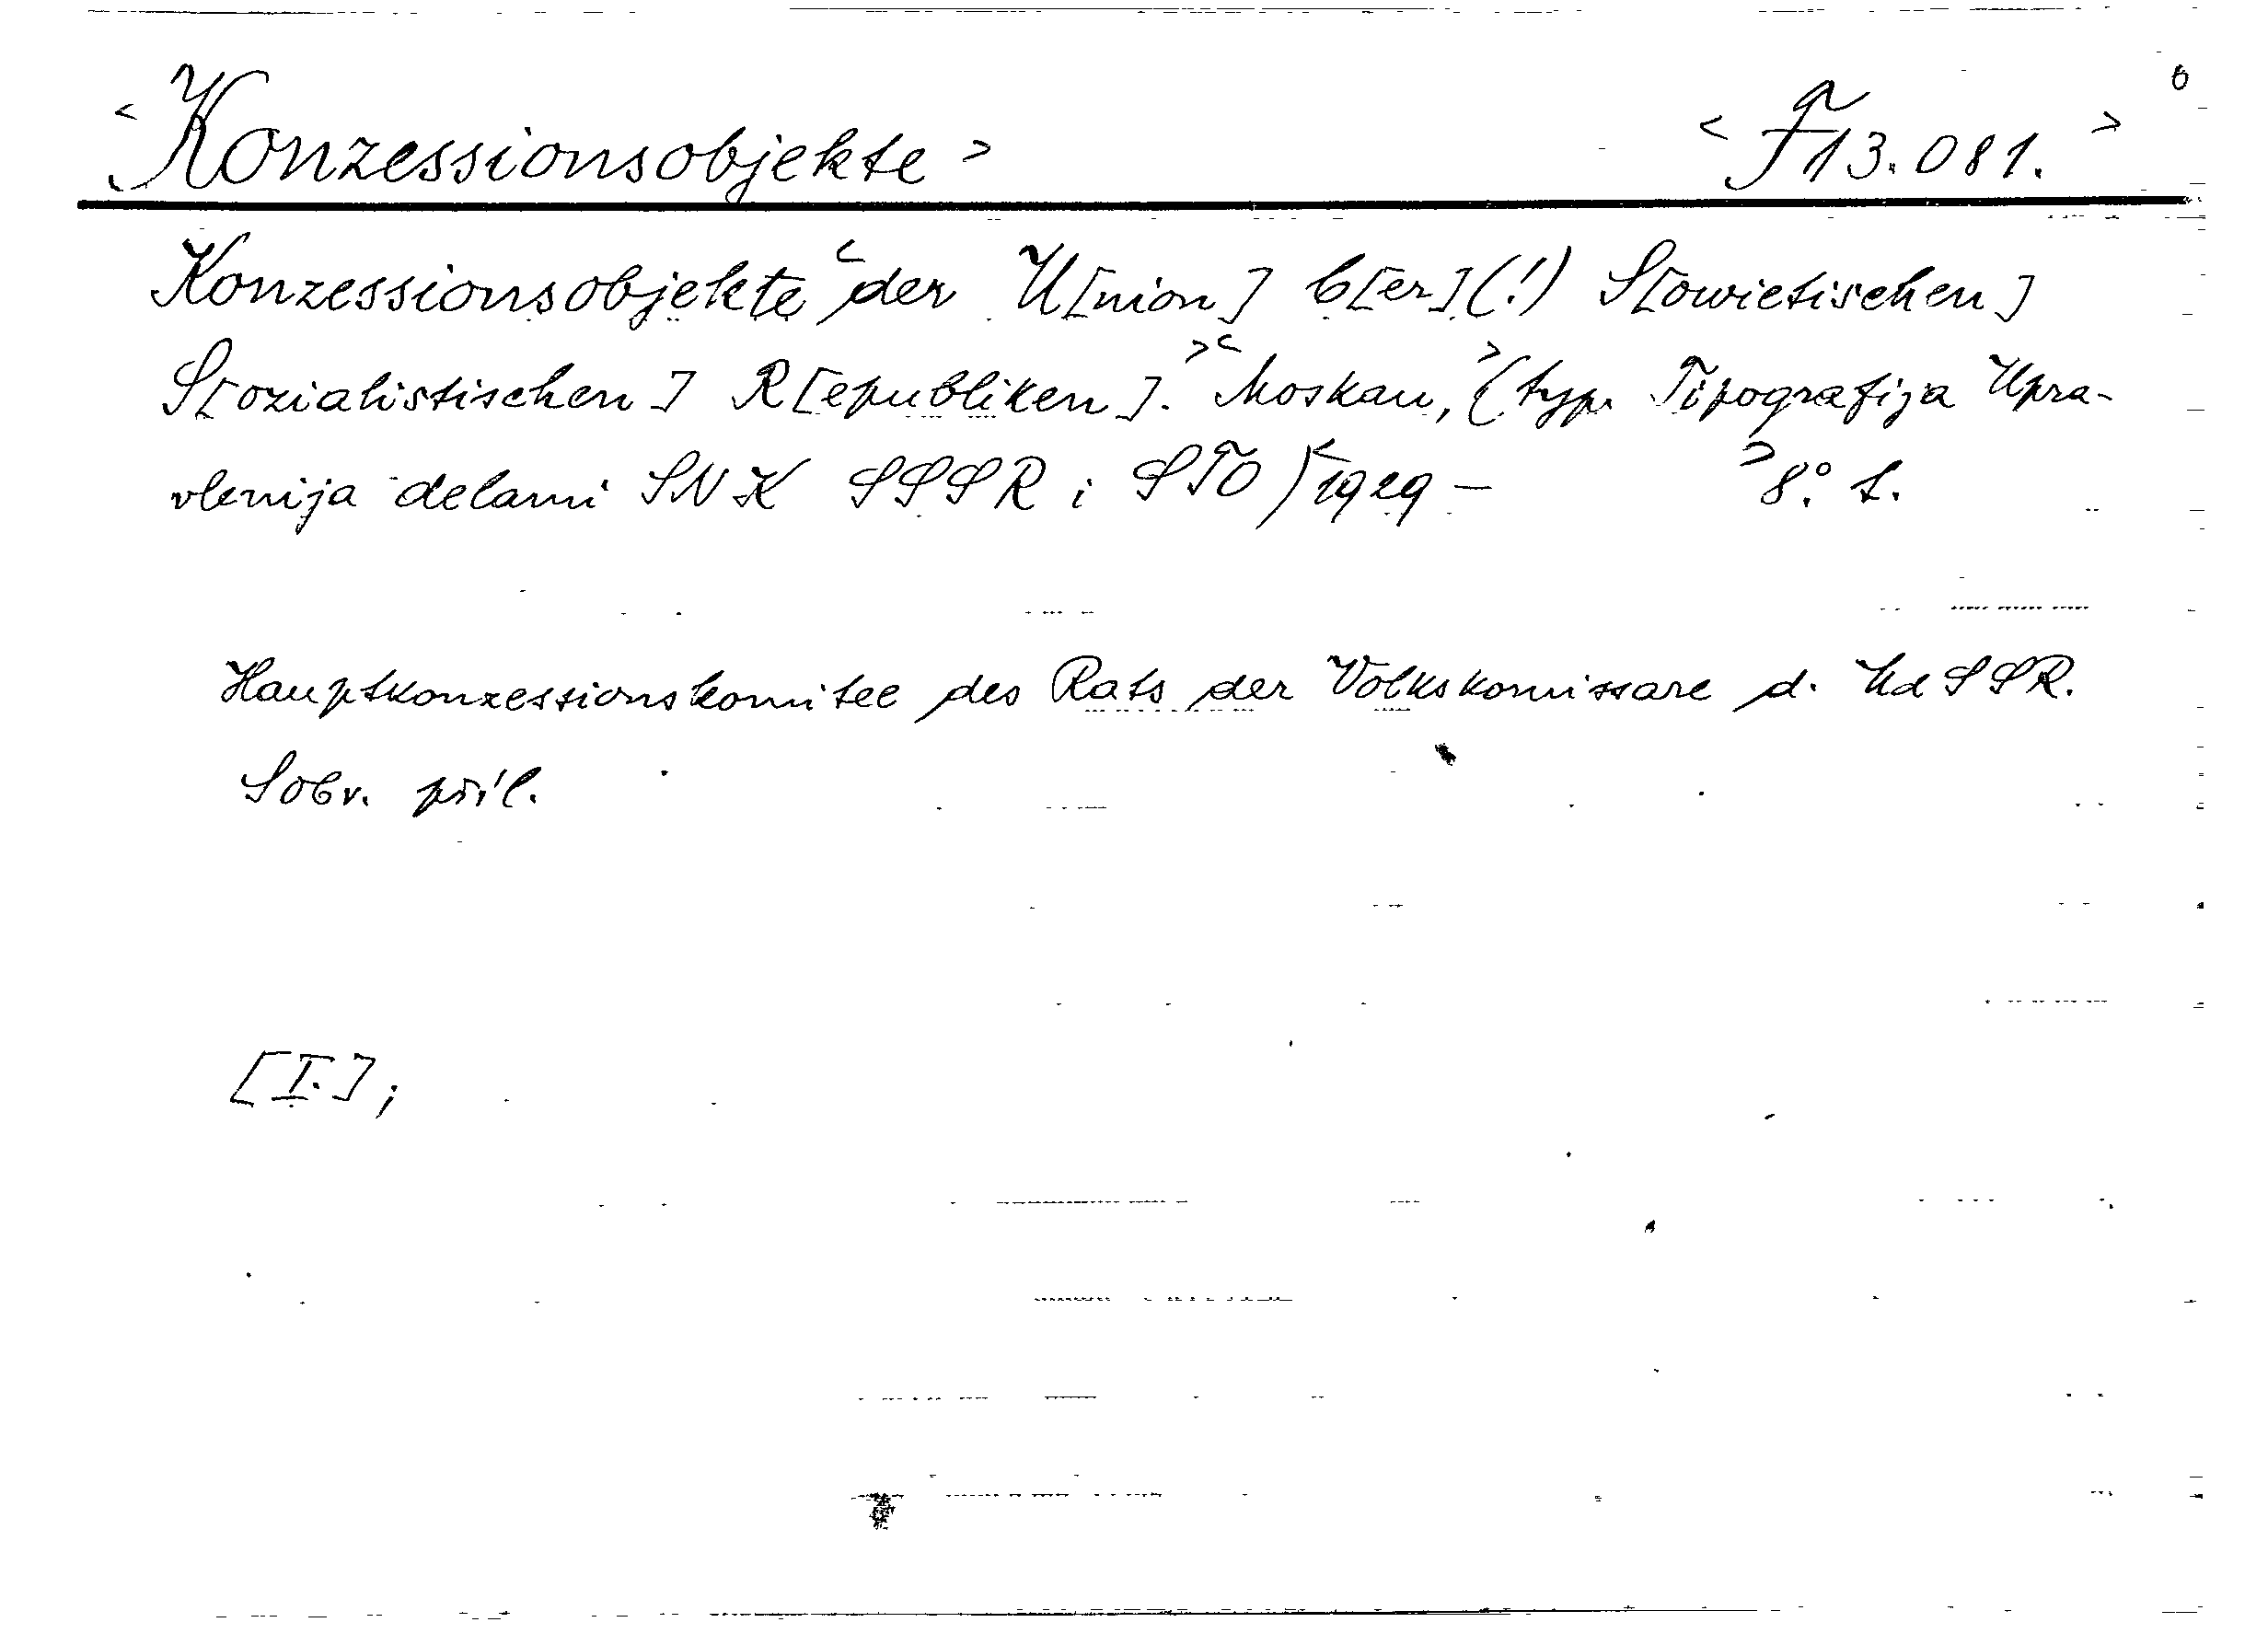 <Konzessionsobjekte> <F 13.081.> 6
Konzessionsobjekte <der U[nion] b[er](!) S[owietischen]
S[ozialistischen] R[epubliken].> <Moskau,> (typ. Tipografija Upra-
vlenija delami SNK SSSR i STO) <1929 - > 8°. S.
Hauptkonzessionskomitee des Rats der Volkskomissare d. UdSSR.
Sobr. příl.
[I.];